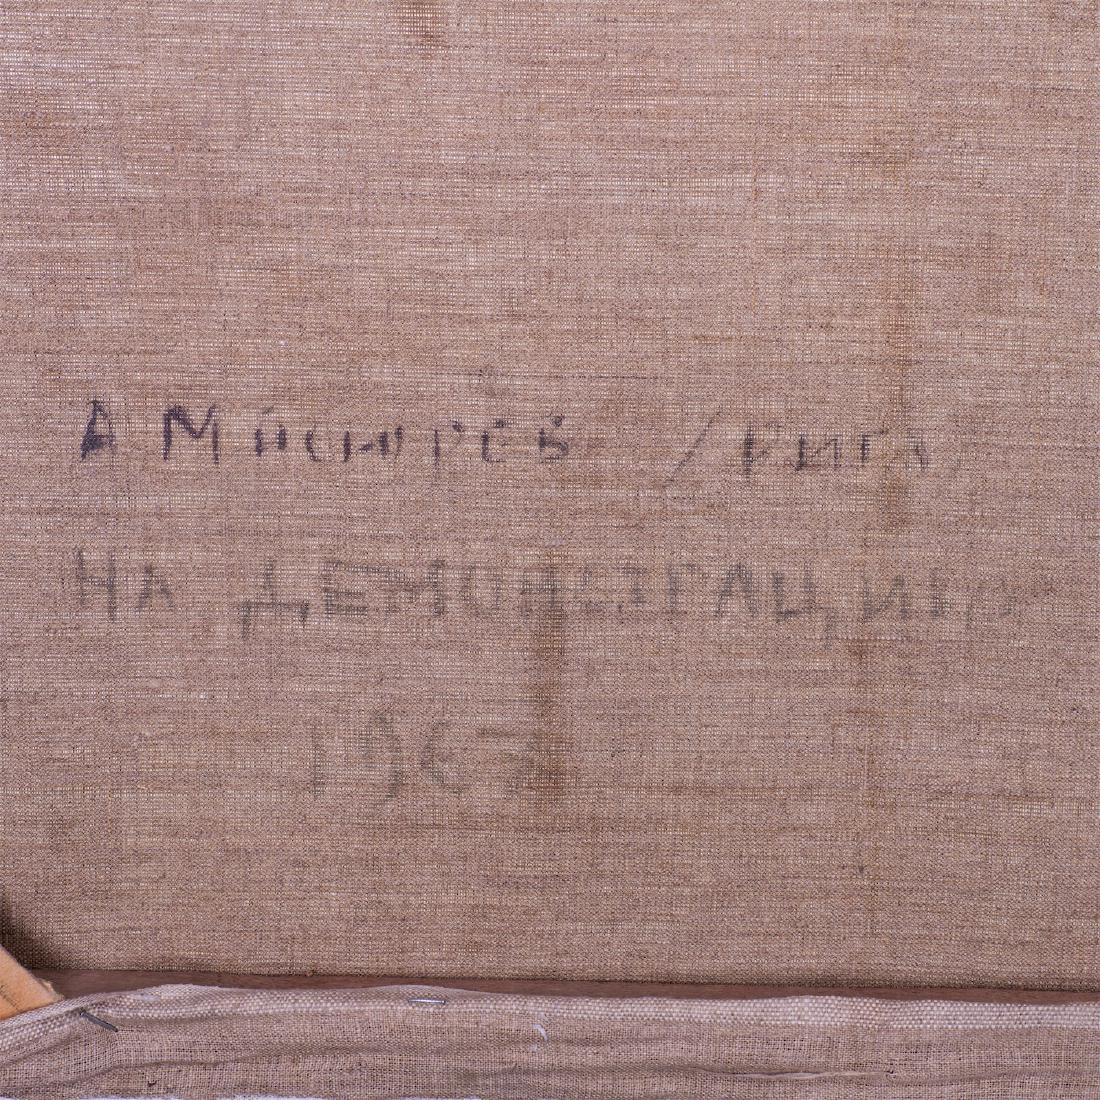 А Мисюрев / Рига
НА ДЕМОНСТРАЦИЮ
1967